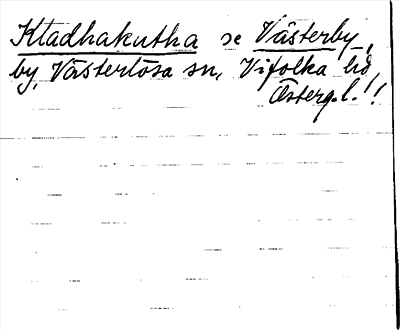 Kladhakutha se Västerby,
by, Västerlösa sn, Vifolka hd
Österg.l.!!